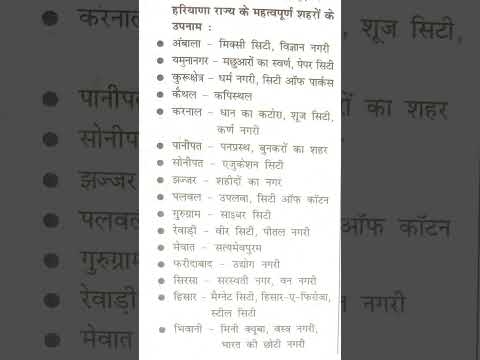 हरियाणा राज्य के महत्वपूर्ण शहरों के
उपनाम :
अंबाला – मिक्सी सिटी, विज्ञान नगरी
यमुनानगर – मछुआरों का स्वर्ण, पेपर सिटी
कुरूक्षेत्र – धर्म नगरी, सिटी ऑफ पार्कस
कैथल – कपिस्थल
करनाल – धान का कटोरा, शूज सिटी,
कर्ण नगरी
पानीपत – पनप्रस्थ, बुनकरों का शहर
सोनीपत – एजुकेशन सिटी
झज्जर – शहीदों का नगर
पलवल – उपलवा, सिटी ऑफ कॉटन
गुरुग्राम – साइबर सिटी
रेवाड़ी – वीर सिटी, पीतल नगरी
मेवात – सत्यमेवपुरम
फरीदाबाद – उद्योग नगरी
सिरसा – सरस्वती नगर, वन नगरी
हिसार – मैग्नेट सिटी, हिसार-ए-फिरोजा,
स्टील सिटी
भिवानी – मिनी क्यूबा, वस्त्र नगरी,
भारत की छोटी नगरी
करनाल
पानीपत
सोनीपत
झज्जर
पलवल
गुरुग्राम
रेवाड़ी
मेवात
शूज सिटी,
का शहर
ऑफ कॉटन
नगरी